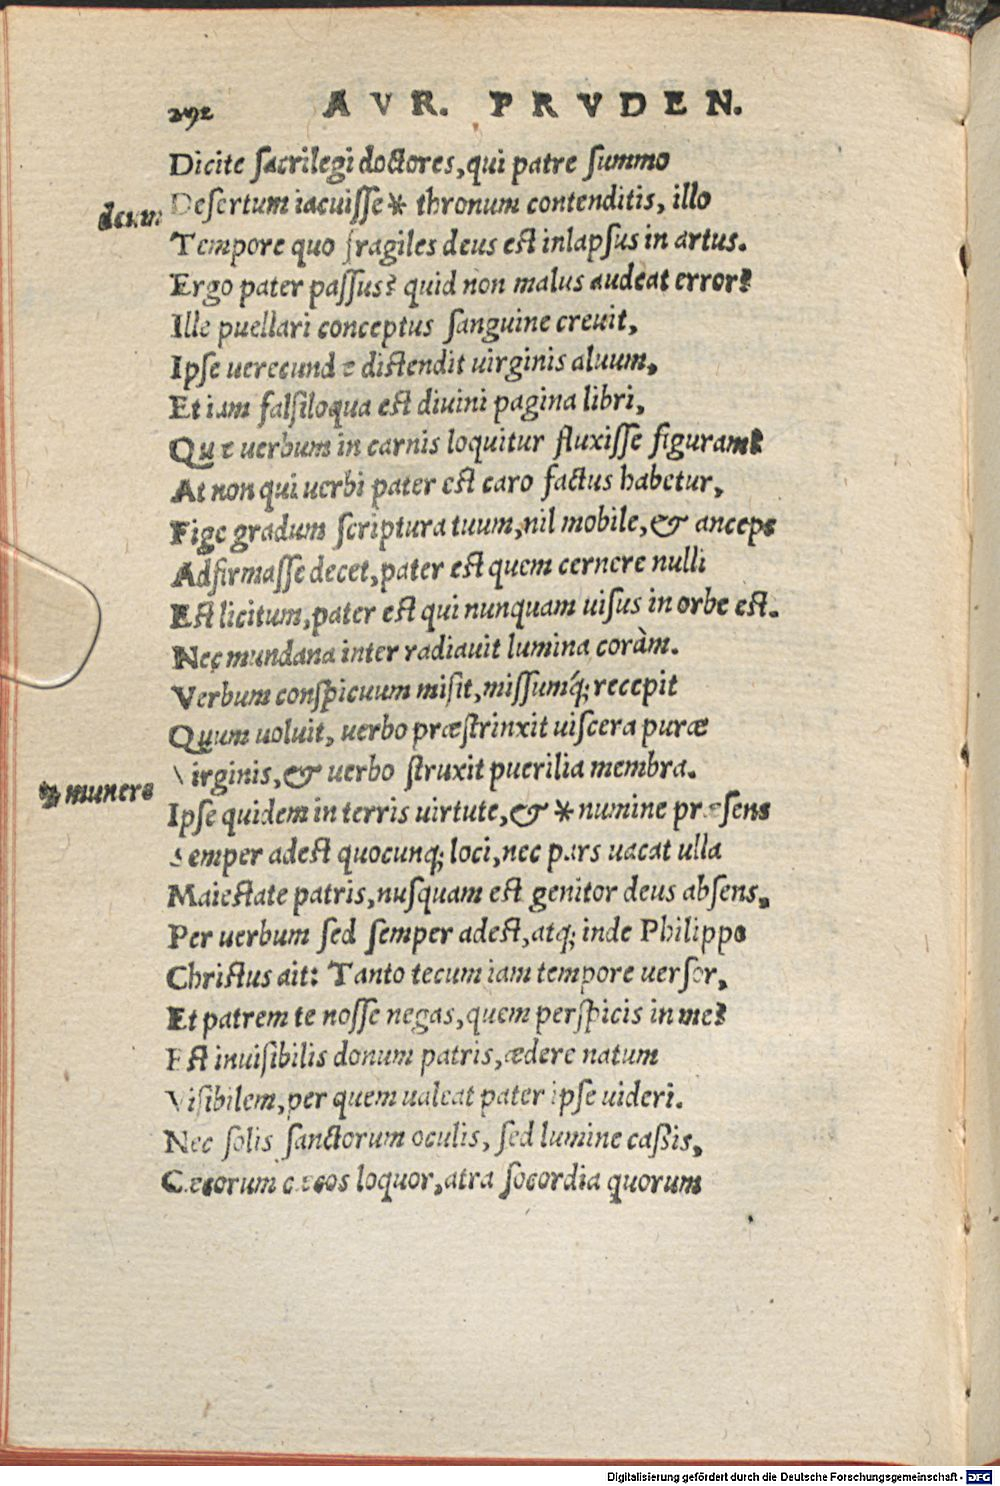 292 AVR. PRVDEN.
Dicite sacrilegi doctores, qui patre summo
deum
Desertum iacuisse * thronum contenditis, illo
Tempore quo fragiles deus est inlapsus in artus.
Ergo pater passus? quid non malus audeat error?
Ille puellari conceptus sanguine creuit,
Ipse uerecundæ distendit uirginis aluum,
Et iam falsiloqua est diuini pagina libri,
Quæ uerbum in carnis loquitur fluxisse figuram?
At non qui uerbi pater est caro factus habetur,
Fige gradum scriptura tuum, nil mobile, & anceps
Adfirmasse decet, pater est quem cernere nulli
Est licitum, pater est qui nunquam uisus in orbe est.
Nec mundana inter radiauit lumina coràm.
Verbum conspicuum misit, missumq́; recepit
Quum uoluit, uerbo præstrinxit uiscera puræ
Virginis, & uerbo struxit puerilia membra.
munere
Ipse quidem in terris uirtute, & * numine præsens
Semper adest quocunq; loci, nec pars uacat ulla
Maiestate patris, nusquam est genitor deus absens,
Per uerbum sed semper adest, atq; inde Philippo
Christus ait: Tanto tecum iam tempore uersor,
Et patrem te nosse negas, quem perspicis in me?
Est inuisibilis donum patris, ædere natum
Visibilem, per quem ualeat pater ipse uideri.
Nec solis sanctorum oculis, sed lumine caßis,
Cæcorum cæcos loquor, atra socordia quorum
Digitalisierung gefördert durch die Deutsche Forschungsgemeinschaft - DFG